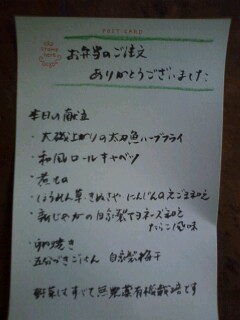 POST CARD
お弁当のご注文
ありがとうございました
本日の献立
・大磯上がりの太刀魚ハーブフライ
・和風ロールキャベツ
・煮
・ほうれん草・きぬさや にんじんのえごま和え
・新じゃがの自家製マヨネーズ和え
たらこ風味
・卵焼き
五分づきごはん 自家製梅干
野菜はすべて無農薬有機栽培です